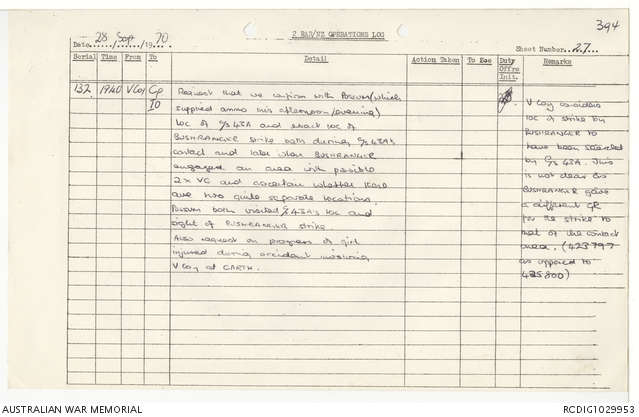 394
2 RAR/NZ OPERATIONS LOG
Date 28 / Sept / 19 70
Sheet Number 27
Serial Time From To Detail Action Taken To See Duty Offrs Init. Remarks
132 1940 V Coy Cp IO
Request that we confirm with Possum (which
supplied ammo this afternoon/evening)
loc of C/S 43A and exact loc of
BUSHRANGER strike both during C/S 43A's
contact and later when BUSHRANGER
engaged an area with possible
2 x VC and ascertain whether there
are two quite separate locations.
Possum both visited C/S 43A's loc and
sight of BUSHRANGER strike.
Also request on progress of girl
injured during accident involving
V Coy at GARTH.
V Coy considers
loc of strike by
BUSHRANGER to
have been selected
by C/S 43A. This
is not clear as
BUSHRANGER gave
a different GR
for the strike to
that of the contact
area. (423797
as opposed to
425800)
AUSTRALIAN WAR MEMORIAL
RCDIG1029953